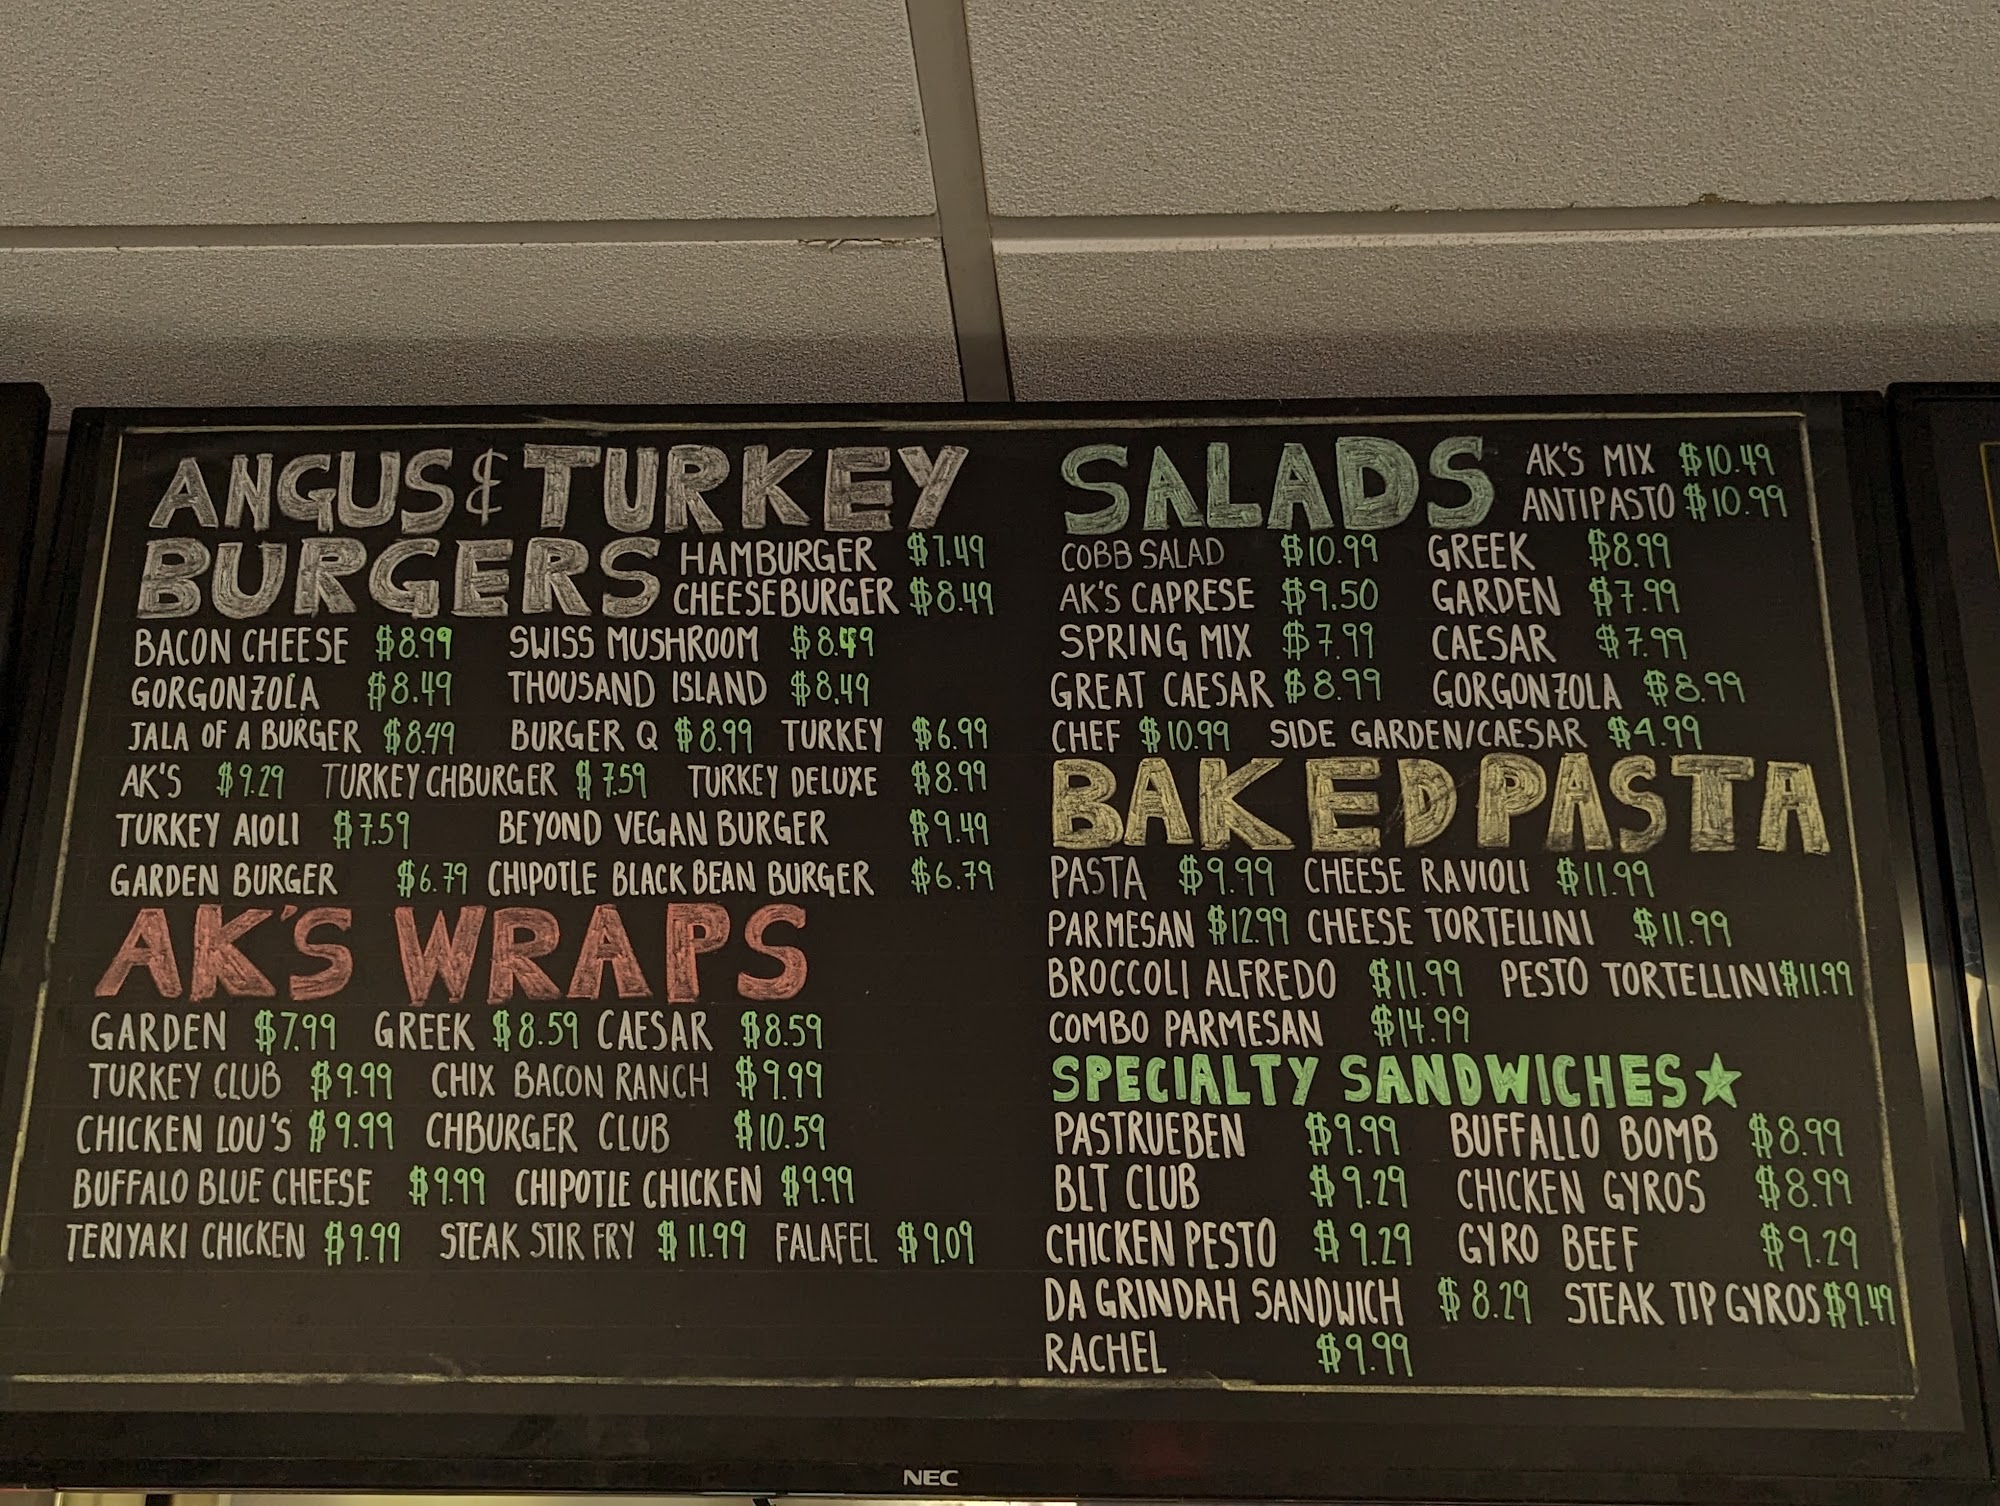 ANGUS & TURKEY
BURGERS
HAMBURGER $7.49
CHEESEBURGER $8.49
BACON CHEESE $8.99 SWISS MUSHROOM $8.49
GORGONZOLA $8.49 THOUSAND ISLAND $8.49
JALA OF A BURGER $8.49 BURGER Q $8.99 TURKEY $6.99
AK'S $9.29 TURKEY CHBURGER $7.59 TURKEY DELUXE $8.99
TURKEY AIOLI $7.59 BEYOND VEGAN BURGER $9.49
GARDEN BURGER $6.79 CHIPOTLE BLACK BEAN BURGER $6.79
AK'S WRAPS
GARDEN $7.99 GREEK $8.59 CAESAR $8.59
TURKEY CLUB $9.99 CHIX BACON RANCH $9.99
CHICKEN LOU'S $9.99 CHBURGER CLUB $10.59
BUFFALO BLUE CHEESE $9.99 CHIPOTLE CHICKEN $9.99
TERIYAKI CHICKEN $9.99 STEAK STIR FRY $11.99 FALAFEL $9.09
SALADS
AK'S MIX $10.49
ANTIPASTO $10.99
COBB SALAD $10.99 GREEK $8.99
AK'S CAPRESE $9.50 GARDEN $7.99
SPRING MIX $7.99 CAESAR $7.99
GREAT CAESAR $8.99 GORGONZOLA $8.99
CHEF $10.99 SIDE GARDEN/CAESAR $4.99
BAKED PASTA
PASTA $9.99 CHEESE RAVIOLI $11.99
PARMESAN $12.99 CHEESE TORTELLINI $11.99
BROCCOLI ALFREDO $11.99 PESTO TORTELLINI $11.99
COMBO PARMESAN $14.99
SPECIALTY SANDWICHES
PASTRUEBEN $9.99 BUFFALLO BOMB $8.99
BLT CLUB $9.29 CHICKEN GYROS $8.99
CHICKEN PESTO $9.29 GYRO BEEF $9.29
DA GRINDAH SANDWICH $8.29 STEAK TIP GYROS $9.49
RACHEL $9.99
NEC